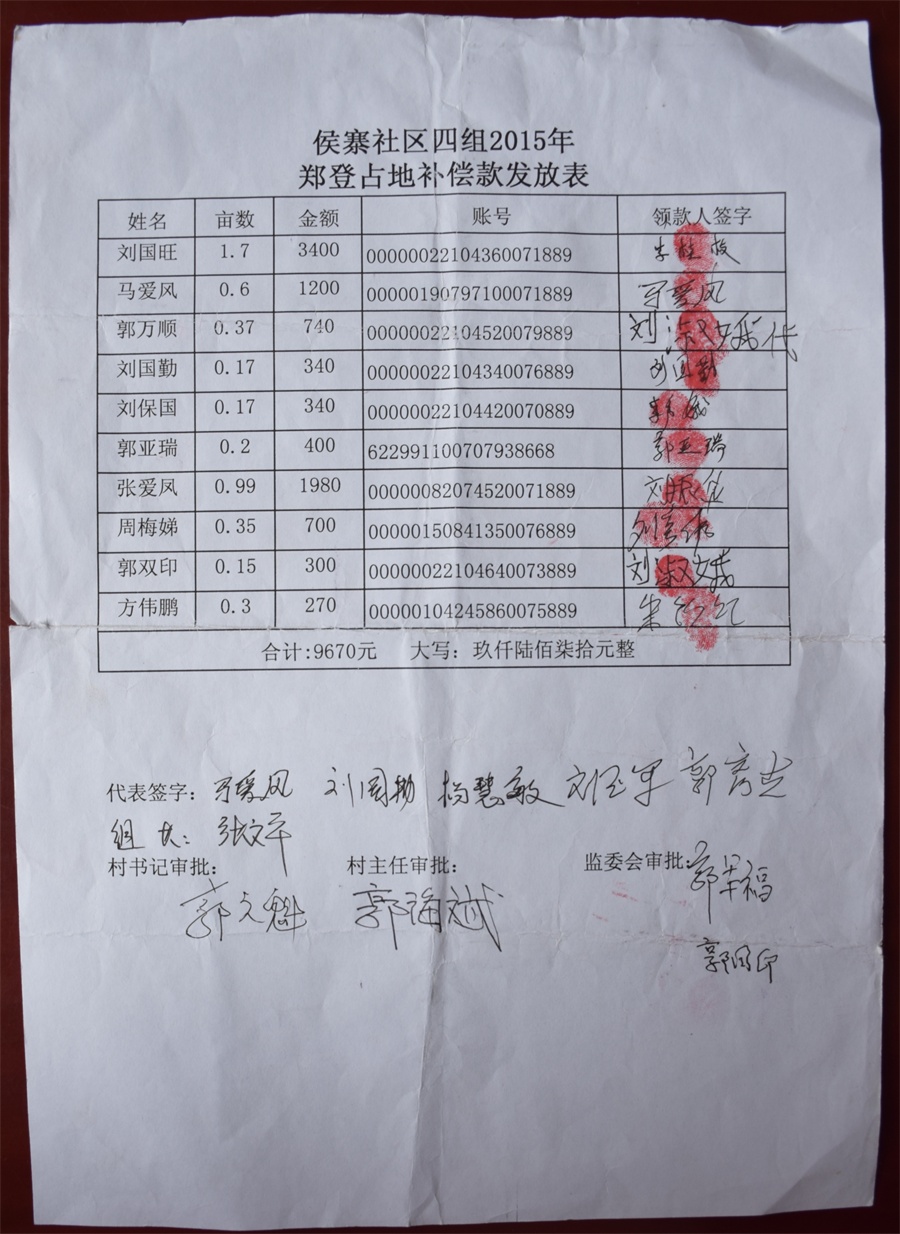 侯寨社区四组2015年
郑登占地补偿款发放表
姓名 亩数 金额 账号 领款人签字
刘国旺 1.7 3400 00000022104360071889 李桂枝
马爱风 0.6 1200 00000190797100071889 马爱风
郭万顺 0.37 740 00000022104520079889 刘淑娥代
刘国勤 0.17 340 00000022104340076889 刘国勤
刘保国 0.17 340 00000022104420070889
郭亚瑞 0.2 400 622991100707938668 郭亚瑞
张爱凤 0.99 1980 00000082074520071889
周梅娣 0.35 700 00000150841350076889
郭双印 0.15 300 00000022104640073889 刘淑娥
方伟鹏 0.3 270 00000104245860075889
合计:9670元 大写：玖仟陆佰柒拾元整
代表签字：马爱风 刘国勤 杨慧敏
组长：张文平
村书记审批： 村主任审批： 监委会审批：
郭文魁 郭海斌 郭幸福
郭同印